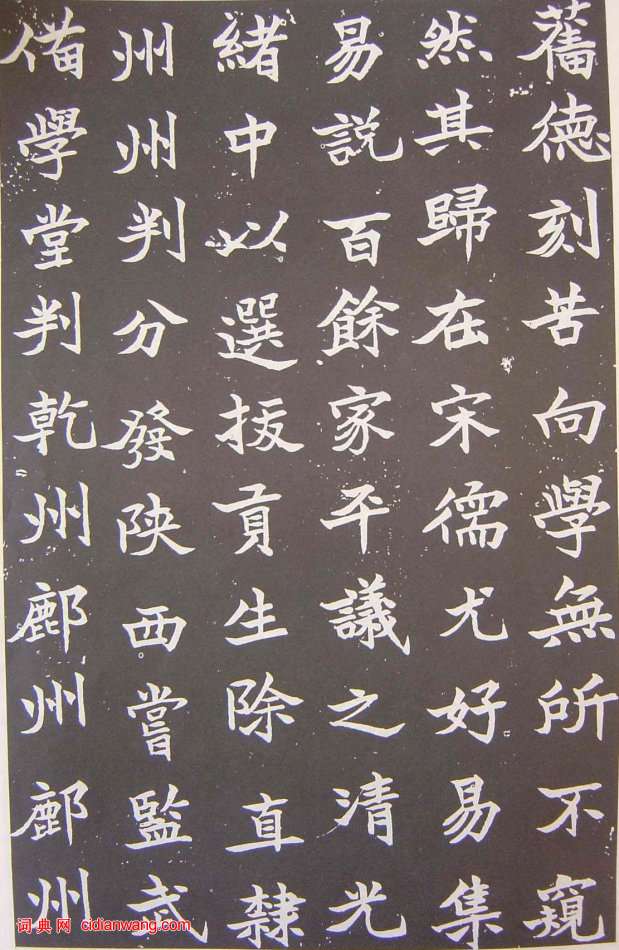 舊德刻苦向學無所不窺
然其歸在宋儒尤好易集
易說百餘家平議之清光
緒中以選拔貢生除直隸
州州判分發陝西嘗監武
備學堂判乾州鄜州鄜州
词典网 cidianwang.com